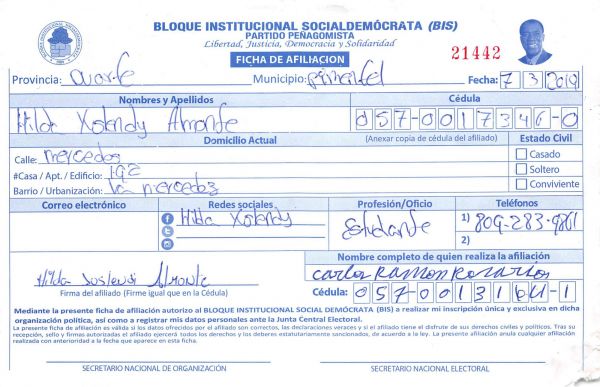 BLOQUE INSTITUCIONAL SOCIALDEMÓCRATA (BIS)
PARTIDO PEÑAGOMISTA
Libertad, Justicia, Democracia y Solidaridad
FICHA DE AFILIACION
21442
Provincia: Duarte Municipio: pimentel Fecha: 7 3 2019
Nombres y Apellidos Cédula
Hilda Xolendy Almonte 057-0017346-0
Domicilio Actual (Anexar copia de cédula del afiliado) Estado Civil
Calle: mercedes Casado
#Casa / Apt. / Edificio: 192 Soltero
Barrio / Urbanización: La mercedes Conviviente
Correo electrónico Redes sociales Profesión/Oficio Teléfonos
Hilda Xolendy Estudiante 1) 809-283-9861
2)
Nombre completo de quien realiza la afiliación
Hilda Almonte Carlos Ramon Rosario
Firma del afiliado (Firme igual que en la Cédula) Cédula: 057001311-1
Mediante la presente ficha de afiliación autorizo al BLOQUE INSTITUCIONAL SOCIAL DEMÓCRATA (BIS) a realizar mi inscripción única y exclusiva en dicha
organización política, así como a registrar mis datos personales ante la Junta Central Electoral.
La presente ficha de afiliación es válida si los datos ofrecidos por el afiliado son correctos, las declaraciones veraces y si el afiliado tiene el disfrute de sus derechos civiles y políticos. Tras su
recepción, sello y firmas autorizadas el afiliado ejercerá todos los derechos y los deberes estatutariamente sancionados, de acuerdo a la ley. La presente afiliación anula cualquier afiliación
realizada con anterioridad a la fecha que aparece en esta ficha.
SECRETARIO NACIONAL DE ORGANIZACIÓN SECRETARIO NACIONAL ELECTORAL